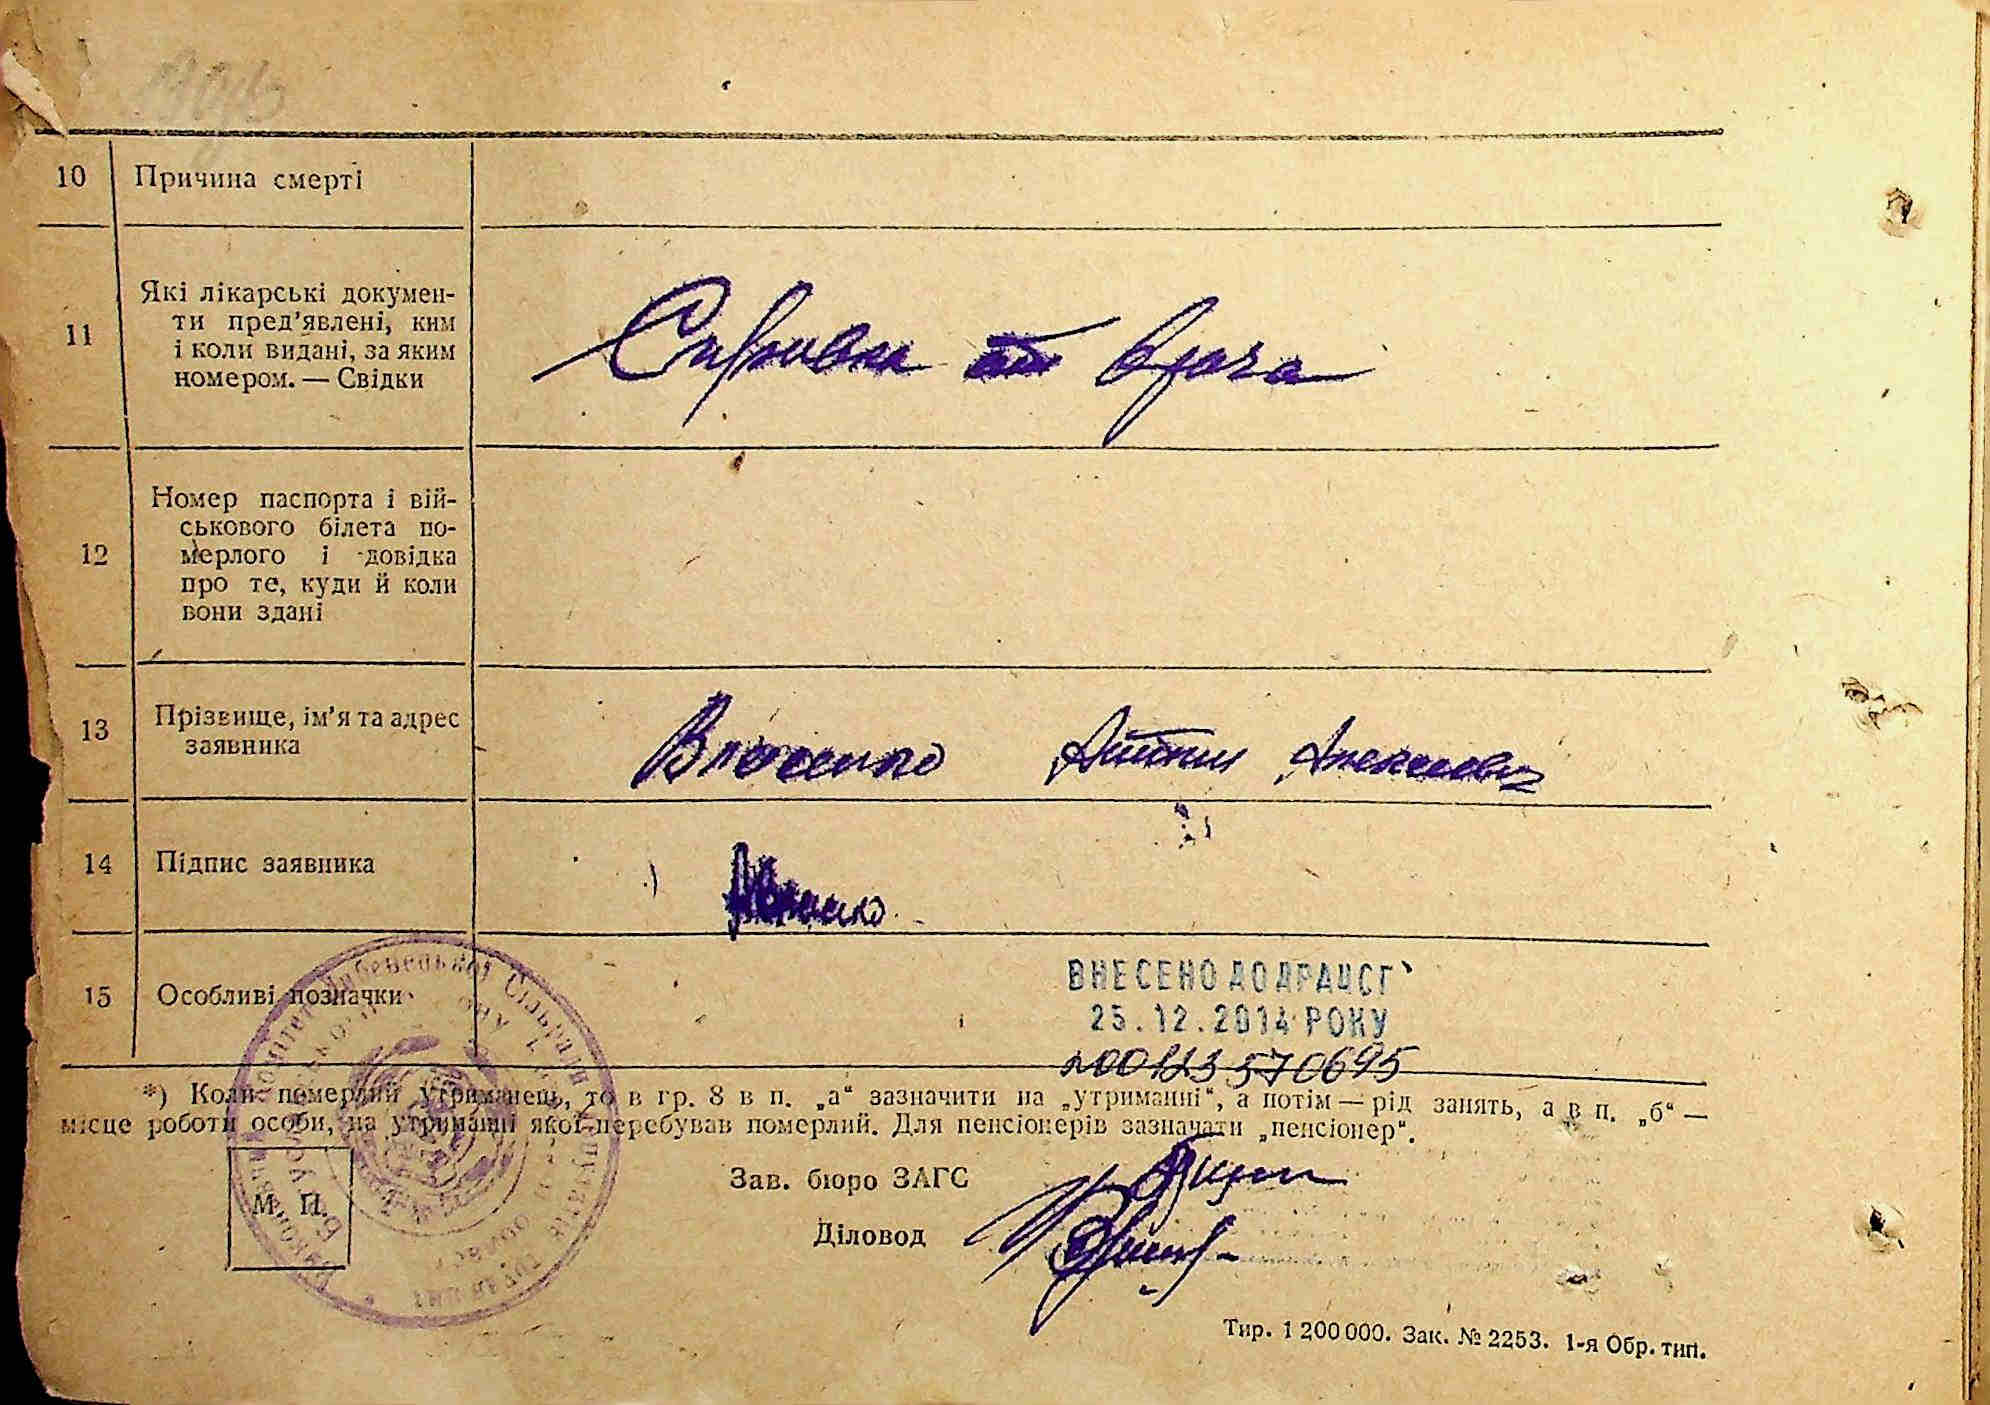 10 Причина смерті
11 Які лікарські докумен-
ти пред'явлені, ким
і коли видані, за яким
номером. — Свідки
Справка от врача
12 Номер паспорта і вій-
ськового білета по-
мерлого і довідка
про те, куди й коли
вони здані
13 Прізвище, ім'я та адрес
заявника
Власенко Антон Алексеевич
14 Підпис заявника
15 Особливі позначки
ВНЕСЕНО ДО ДРАЦСГ
25.12.2014 РОКУ
*) Коли померлий утриманець, то в гр. 8 в п. „а“ зазначити на „утриманні“, а потім — рід занять, а в п. „б“ —
місце роботи особи, на утриманні якої перебував померлий. Для пенсіонерів зазначати „пенсіонер“.
М. П.
Зав. бюро ЗАГС
Діловод
Тир. 1 200 000. Зак. № 2253. 1-я Обр. тип.